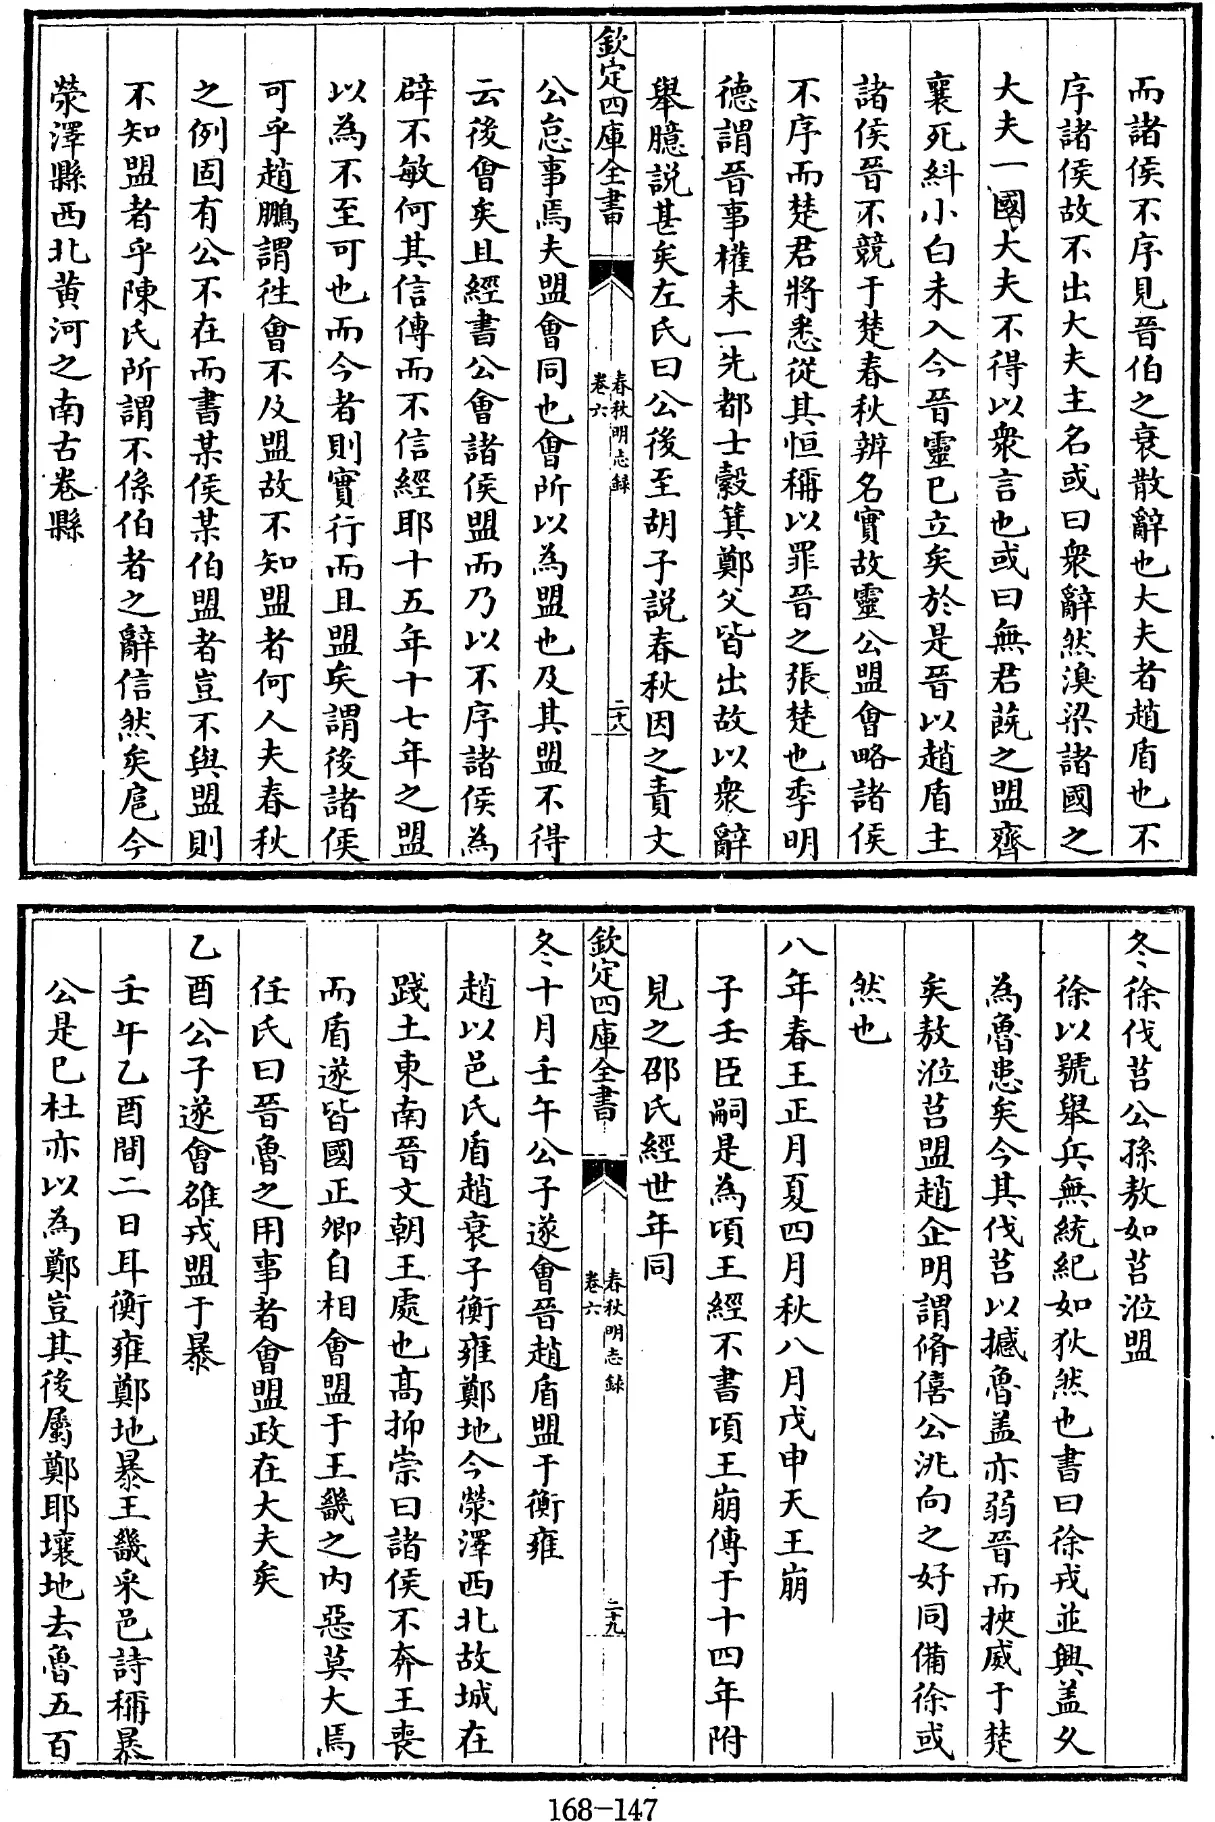 而諸侯不序見晉伯之衰散辭也大夫者趙盾也不
序諸侯故不出大夫主名或曰衆辭然溴梁諸國之
大夫一國大夫不得以衆言也或曰無君蔇之盟齊
襄死糾小白未入今晉靈已立矣於是晉以趙盾主
諸侯晉不競于楚春秋辨名實故靈公盟會略諸侯
不序而楚君將悉從其恒稱以罪晉之張楚也季明
德謂晉事權未一先都士縠箕鄭父皆出故以衆辭
舉臆説甚矣左氏曰公後至胡子説春秋因之責文
欽定四庫全書
春秋明志録
卷六
二十八
公怠事焉夫盟會同也會所以為盟也及其盟不得
云後會矣且經書公會諸侯盟而乃以不序諸侯為
辟不敏何其信傳而不信經耶十五年十七年之盟
以為不至可也而今者則實行而且盟矣謂後諸侯
可乎趙鵬謂徃會不及盟故不知盟者何人夫春秋
之例固有公不在而書某侯某伯盟者豈不與盟則
不知盟者乎陳氏所謂不係伯者之辭信然矣扈今
滎澤縣西北黄河之南古卷縣
冬徐伐莒公孫敖如莒涖盟
徐以號舉兵無統紀如狄然也書曰徐戎並興盖乆
為魯患矣今其伐莒以撼魯盖亦弱晉而挾威于楚
矣敖涖莒盟趙企明謂脩僖公洮向之好同備徐或
然也
八年春王正月夏四月秋八月戊申天王崩
子壬臣嗣是為頃王經不書頃王崩傳于十四年附
見之邵氏經世年同
欽定四庫全書
春秋明志録
卷六
二十九
冬十月壬午公子遂會晉趙盾盟于衡雍
趙以邑氏盾趙衰子衡雍鄭地今滎澤西北故城在
踐土東南晉文朝王處也髙抑崇曰諸侯不奔王喪
而盾遂皆國正卿自相會盟于王畿之内惡莫大焉
任氏曰晉魯之用事者會盟政在大夫矣
乙酉公子遂會雒戎盟于暴
壬午乙酉間二日耳衡雍鄭地暴王畿采邑詩稱暴
公是巳杜亦以為鄭豈其後屬鄭耶壤地去魯五百
168-147